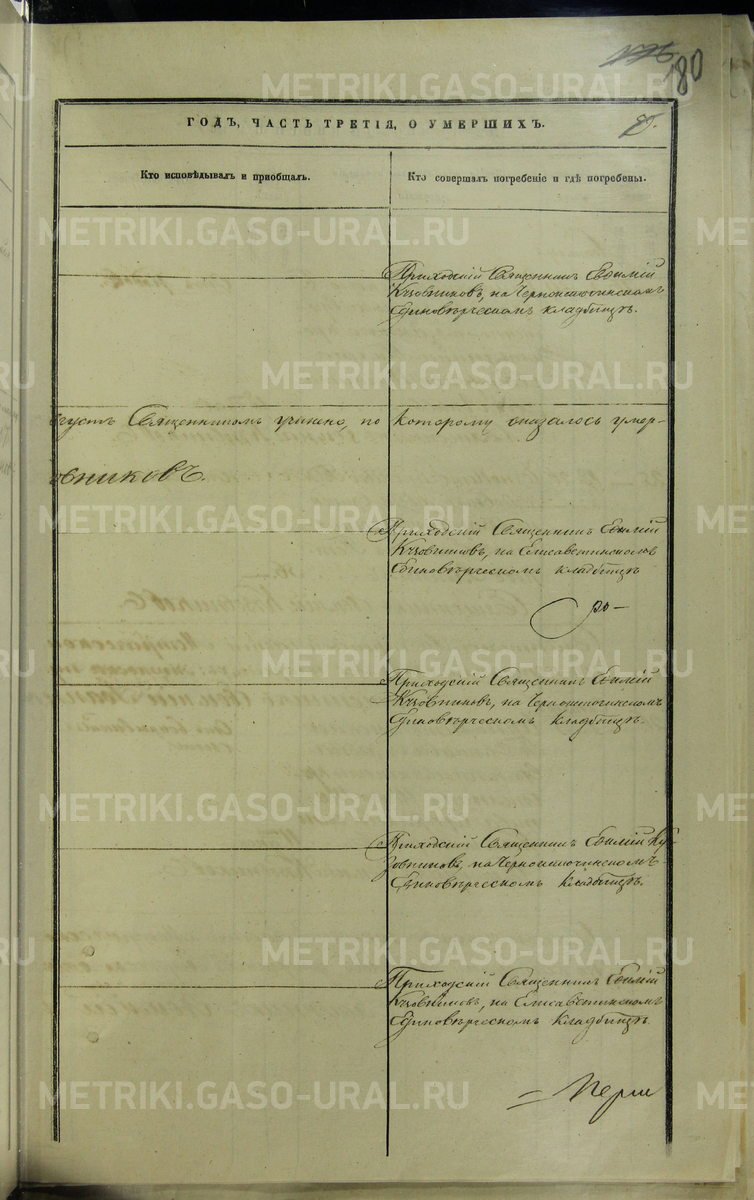 180
ГОДЪ, ЧАСТЬ ТРЕТІЯ, О УМЕРШИХЪ.
Кто исповѣдывалъ и приобщалъ.
Кто совершалъ погребеніе и гдѣ погребены.
Приходскій Священникъ Евѳимій
Кузовниковъ, на Черноисточинскомъ
Единовѣрческомъ кладбищѣ.
густъ Священникомъ учинено, по которому оказалось умер-
овниковъ.
Приходскій Священникъ Евѳимій
Кузовниковъ, на Елисаветинскомъ
Единовѣрческомъ кладбищѣ
Приходскій Священникъ Евѳимій
Кузовниковъ, на Черноисточинскомъ
Единовѣрческомъ кладбищѣ.
Приходскій Священникъ Евѳимій Ку-
зовниковъ, на Черноисточинскомъ
Единовѣрческомъ кладбищѣ.
Приходскій Священникъ Евѳимій
Кузовниковъ, на Елисаветинскомъ
Единовѣрческомъ кладбищѣ
METRIKI.GASO-URAL.RU